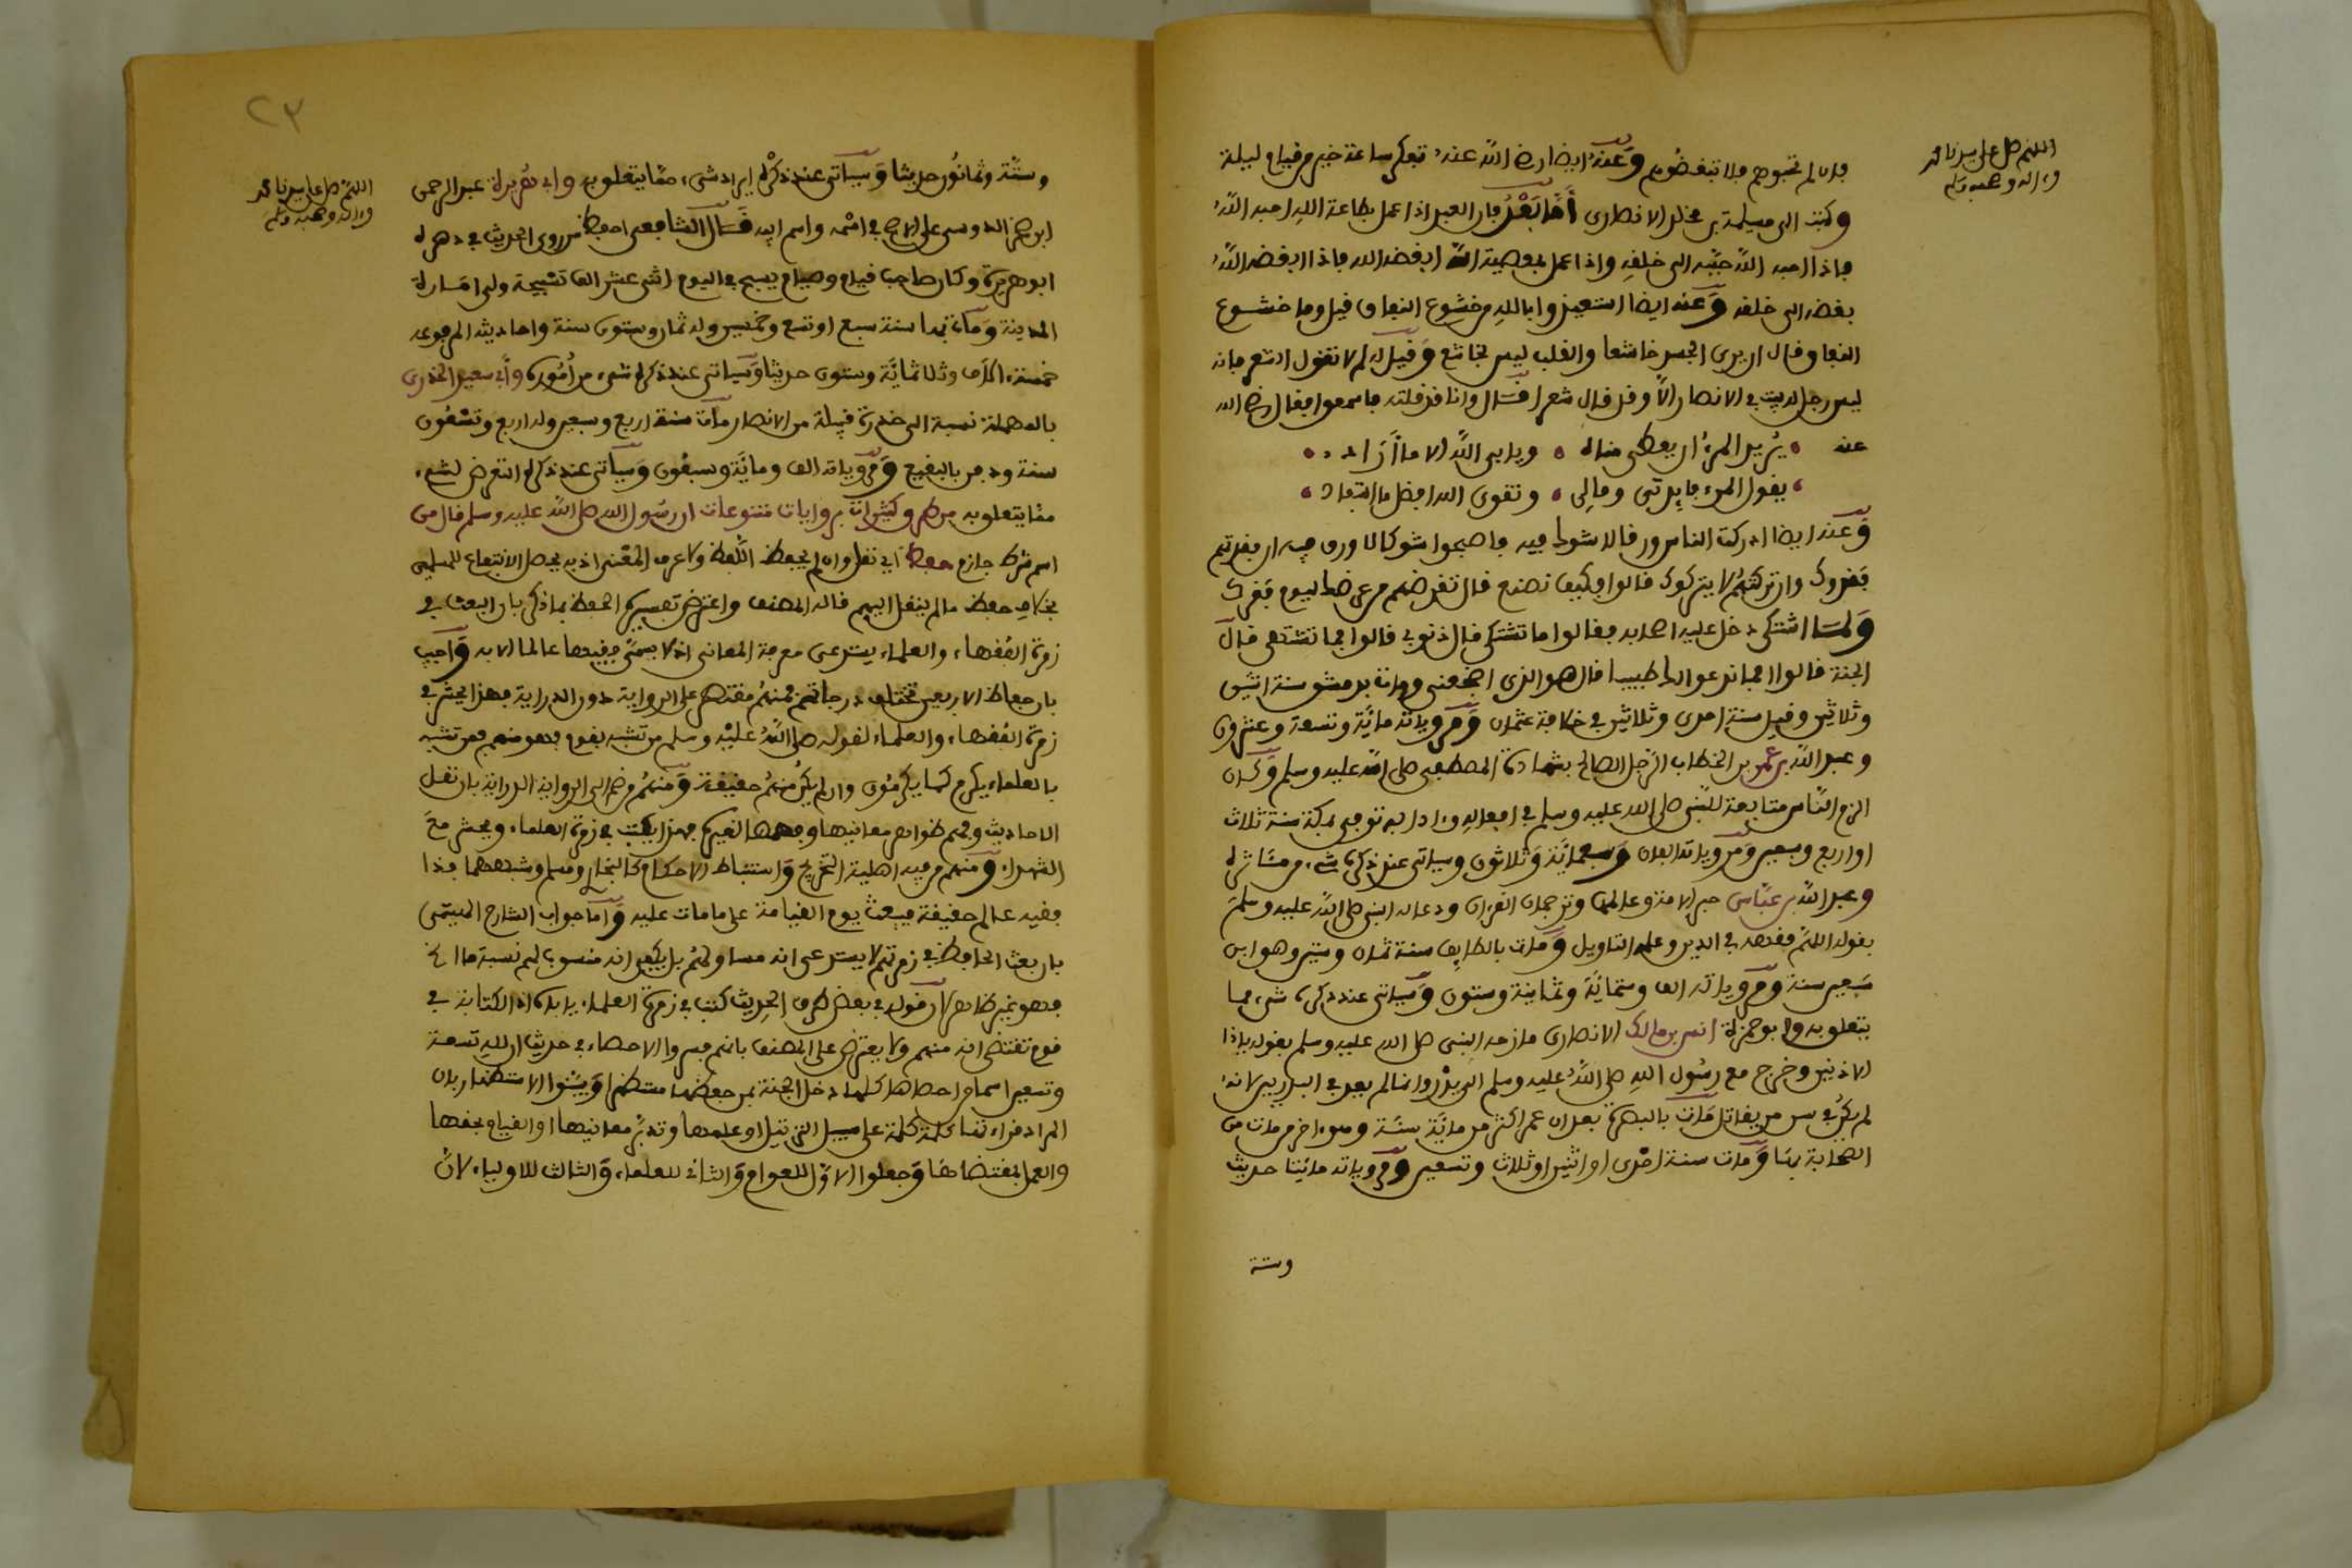 اللهم صل على سيدنا محمد
وءاله وصحبه وسلم
فان لم تحبوهم فلا تبغضوهم وعنه ايضا رضي الله عنه تفكر ساعة خير من قيام ليلة
وكتب الى مسلمة بن مخلد الانصارى أما بعد فان العبد اذا عمل بطاعة الله احبه الله
فاذا احبه الله حببه الى خلقه واذا عمل بمعصية الله ابغضه الله فاذا ابغضه الله
بغضه الى خلقه وعنه ايضا استعيذوا بالله من خشوع النفاق قيل وما خشوع
النفاق قال ان يرى الجسد خاشعا والقلب ليس بخاشع وقيل له لم لا تقول الشعر فانه
ليس رجل له بيت في الانصار الا وقد قال شعرا قال وانا قد قلته فاسمعوا فقال رضي الله
عنه يريد المرء ان يعطى مناه ويابى الله الا ما أراد
يقول المرء فايدتى ومالى وتقوى الله افضل ما استفاد
وعنه ايضا ادركت الناس ورقا لا شوك فيه فاصبحوا شوكا لا ورق فيه ان نقدتهم
نقدوك وان تركتهم لا يتركوك قالوا وكيف نصنع قال تقرضهم من عرضك ليوم فقرك
ولما اشتكى دخل عليه اصحابه فقالوا ما تشتكى قال ذنوبى قالوا فما تشتهى قال
الجنة قالوا افما ندعوا لك طبيبا قال هو الذى اضجعنى ومات بدمشق سنة اثنين
وثلاثين وقيل سنة احدى وثلاثين في خلافة عثمان ومروياته مائة وتسعة وعشرون
وعبد الله بن عمر بن الخطاب الرجل الصالح بشهادة المصطفى صلى الله عليه وسلم وكان
الزم الناس متابعة للنبى صلى الله عليه وسلم في افعاله وءادابه توفى بمكة سنة ثلاث
او اربع وسبعين ومروياته الفان وسبعمائة وثلاثون وسياتى عند ذكره شىء من مئاثره
وعبد الله بن عباس حبر الامة وعالمها وترجمان القرءان ودعا له النبى صلى الله عليه وسلم
بقوله اللهم فقهه في الدين وعلمه التاويل ومات بالطايف سنة ثمان وستين وهو ابن
سبعين سنة ومروياته الف وستمائة وثمانية وستون وسياتى عند ذكره شىء مما
يتعلق به وابو حمزة انس بن مالك الانصارى مازحه النبى صلى الله عليه وسلم بقوله ياذا
الاذنين وخرج مع رسول الله صلى الله عليه وسلم الى بدر وانما لم يعد في البدريين لانه
لم يكن في سن من يقاتل مات بالبصرة بعد ان عمر اكثر من مائة سنة وهو اخر من مات من
الصحابة بها ومات سنة احدى او اثنين او ثلاث وتسعين ومروياته مائتا حديث
وستة
٢٣
اللهم صل على سيدنا محمد
وءاله وصحبه وسلم
وستة وثمانون حديثا وسياتى عند ذكره ايراد شىء مما يتعلق به وابى هريرة عبد الرحمن
ابن صخر الدوسى على الاصح في اسمه واسم ابيه قال الشافعى احفظ من روى الحديث في دهره
ابو هريرة وكان صاحب قيام وصيام يسبح في اليوم اثنى عشر الف تسبيحة ولى امارة
المدينة ومات بها سنة سبع او تسع وخمسين وله ثمان وستون سنة واحاديثه المرفوعة
خمسة الاف وثلاثمائة وستون حديثا وسياتى عند ذكره شىء من أموره وأبى سعيد الخدرى
بالمهملة نسبة الى خدرة قبيلة من الانصار مات سنة اربع وسبعين وله اربع وتسعون
سنة ودفن بالبقيع ومروياته الف ومائة وسبعون وسياتى عند ذكره التعرض لشىء
مما يتعلق به من طرق كثيرات بروايات متنوعات ان رسول الله صلى الله عليه وسلم قال من
اسم شرط جازم حفظ اى نقل وان لم يحفظ اللفظ ولا عرف المعنى اذ به يحصل الانتفاع للمسلمين
بخلاف حفظ ما لم ينقل اليهم قاله المصنف واعترض تفسيره الحفظ بما ذكر بان البعث في
زمرة الفقهاء والعلماء يستدعى معرفة المعانى اذ لا يسمى فقيها عالما الا به واجيب
بان حفاظ الاربعين تختلف درجاتهم فمنهم مقتصر على الرواية دون الدراية فهذا يحشر في
زمرة الفقهاء والعلماء لقوله صلى الله عليه وسلم من تشبه بقوم فهو منهم فمن تشبه
بالعلماء يكرم كما يكرمون وان لم يكن منهم حقيقة ومنهم من ضم الى الرواية الدراية بان نقل
الاحاديث وفهم ظواهر معانيها وفهمها لغيره فهذا يكتب في زمرة العلماء ويحشر مع
الشهداء ومنهم من فيه اهلية التخريج واستنباط الاحكام كالبخارى ومسلم وشبههما فهذا
فقيه عالم حقيقة فيبعث يوم القيامة على ما مات عليه وأما جواب الشارح الهيتمى
بان بعث الحافظ في زمرتهم لا يستدعى انه مساو لهم بل يكفى انه منسوب لهم نسبة ما الخ
فهو غير ظاهر لان قوله في بعض طرق الحديث كتب في زمرة العلماء ياباه اذ الكتابة في
قوم تقتضى انه منهم ولا يعترض على المصنف بانهم فسروا الاحصاء في حديث ان لله تسعة
وتسعين اسما من احصاها كلها دخل الجنة بمن حفظها مستظهرا وبينوا الاستظهار بان
المراد قراءتها كلمة كلمة على سبيل الترتيل او علمها وتدبر معانيها او القيام بحقها
والعمل بمقتضاها وجعلوا الاول للعوام والثانى للعلماء والثالث للاولياء لان